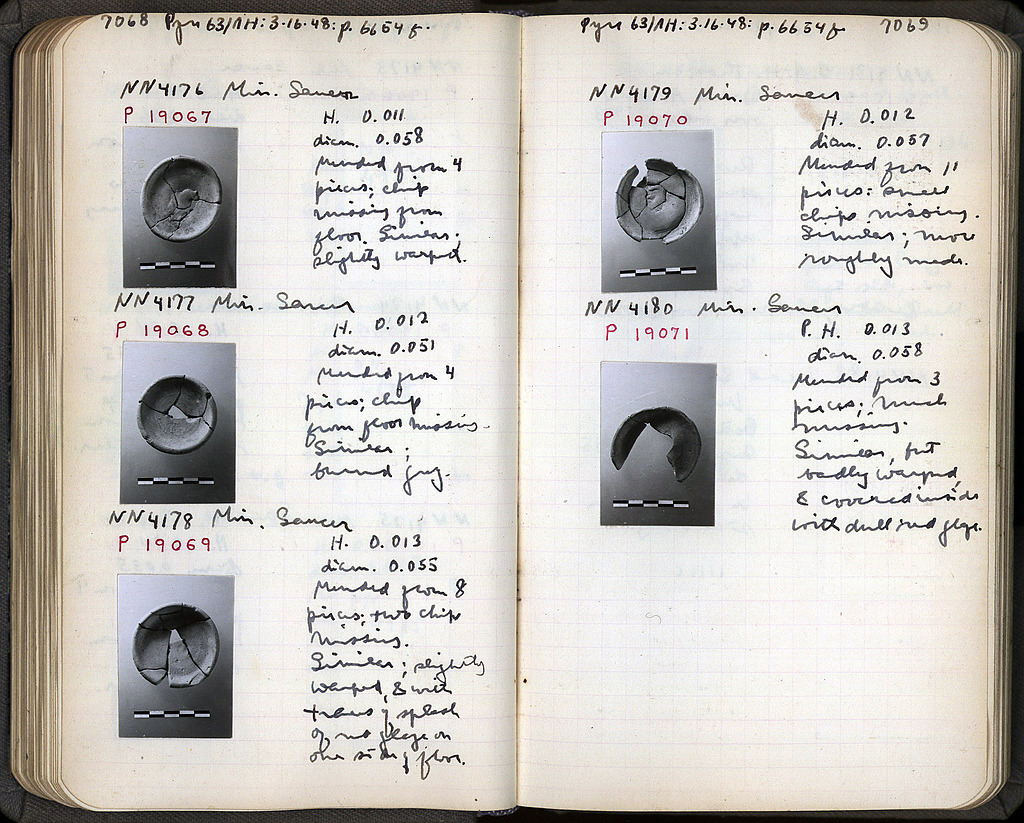 7068 Pyre 63/ΛH: 3·16·48: p. 6654 f.
NN4176 Min. Saucer
P 19067
H. 0.011
diam. 0.058
Mended from 4
pieces; chip
missing from
floor. Similar;
slightly warped.
NN4177 Min. Saucer
P 19068
H. 0.012
diam. 0.051
Mended from 4
pieces; chip
from floor missing.
Similar;
burned grey.
NN4178 Min. Saucer
P 19069
H. 0.013
diam. 0.055
Mended from 8
pieces; two chips
missing.
Similar; slightly
warped, & with
traces of splash
of red glaze on
one side of floor.
Pyre 63/ΛH: 3·16·48: p. 6654 f. 7069
NN4179 Min. Saucer
P 19070
H. 0.012
diam. 0.057
Mended from 11
pieces: small
chips missing.
Similar; more
roughly made.
NN4180 Min. Saucer
P 19071
P. H. 0.013
diam. 0.058
Mended from 3
pieces; much
missing.
Similar, but
badly warped,
& covered inside
with dull red glaze.